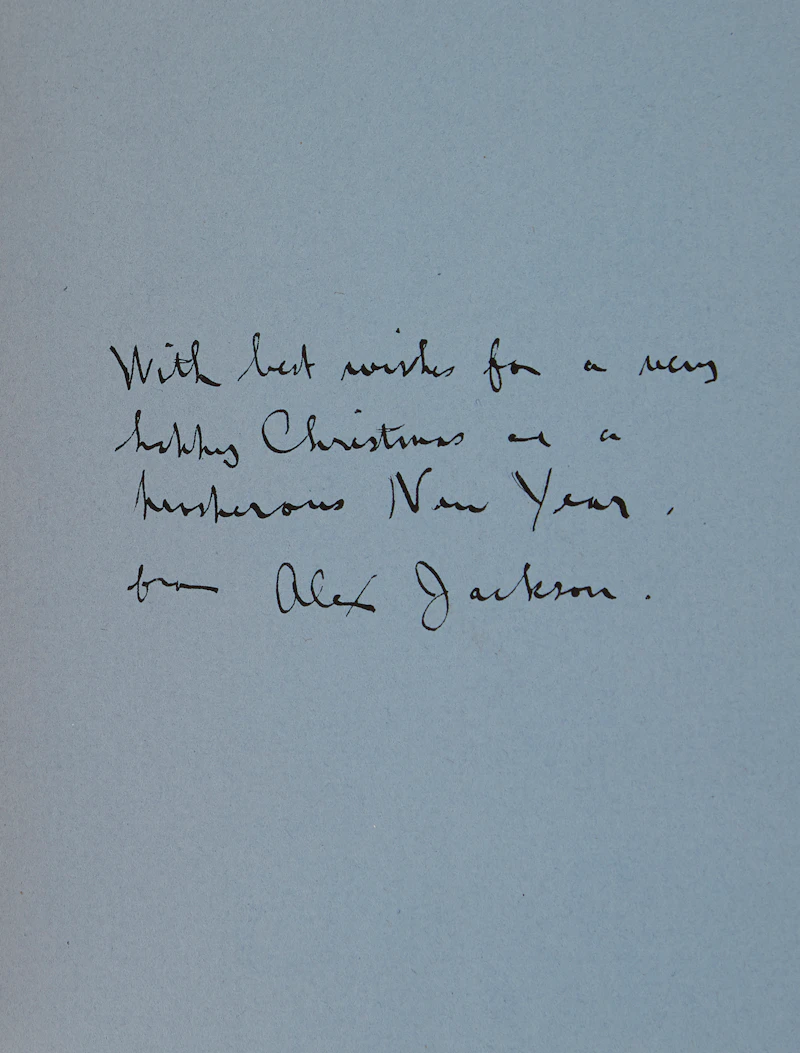 With best wishes for a very
happy Christmas and a
prosperous New Year.
from Alex Jackson.